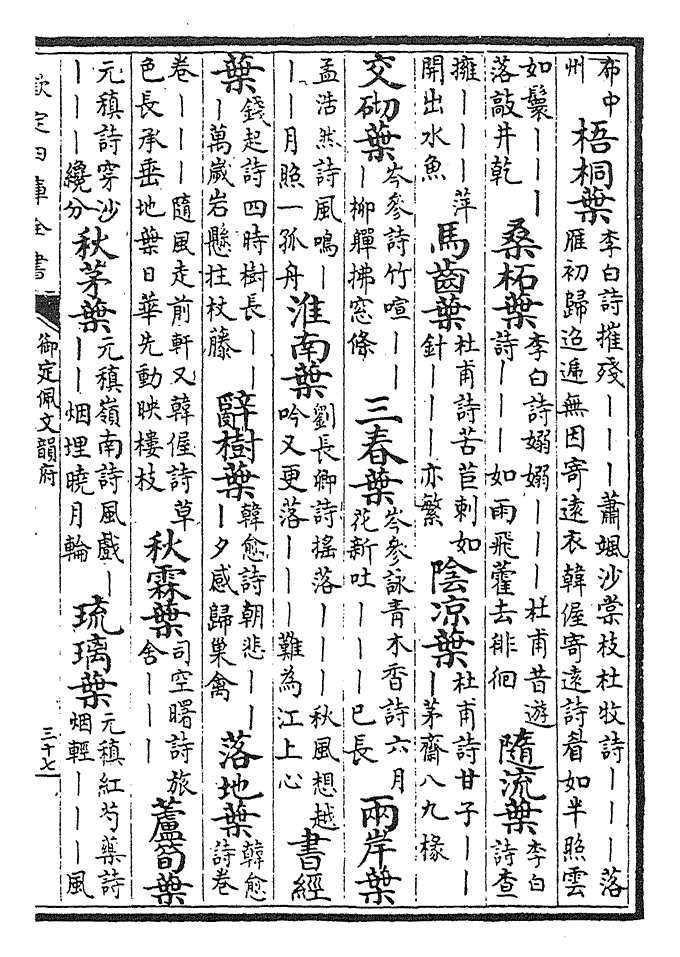 布中
州
梧桐葉
李白詩摧殘｜｜｜蕭颯沙棠枝杜牧詩｜｜｜落
雁初歸迢遞無因寄遠衣韓偓寄遠詩眉如半照雲
如鬟｜｜｜
落敲井乾
桑柘葉
李白詩嫋嫋｜｜｜杜甫昔遊
詩｜｜｜如雨飛藿去徘徊
隨流葉
李白
詩查
擁｜｜｜萍
開出水魚
馬齒葉
杜甫詩苦苣刺如
針｜｜｜亦繁
陰凉葉
杜甫詩甘子｜｜
｜茅齋八九椽
交砌葉
岑參詩竹喧｜｜
｜柳嚲拂窓條
三春葉
岑參詠青木香詩六月
花新吐｜｜｜已長
兩岸葉
孟浩然詩風鳴｜
｜｜月照一孤舟
淮南葉
劉長卿詩搖落｜｜｜秋風想越
吟又更落｜｜｜難為江上心
書經
葉
錢起詩四時樹長｜｜
｜萬嵗岩懸拄杖藤
辭樹葉
韓愈詩朝悲｜｜
｜夕感歸巢禽
落地葉
韓愈
詩卷
卷｜｜｜隨風走前軒又韓偓詩草
色長承垂地葉日華先動映樓枝
秋霖葉
司空曙詩旅
舍｜｜｜
蘆筍葉
元稹詩穿沙
｜｜｜纔分
秋茅葉
元稹嶺南詩風戲｜
｜｜烟埋曉月輪
琉璃葉
元稹紅芍藥詩
烟輕｜｜｜風
欽定四庫全書
御定佩文韻府
三十七